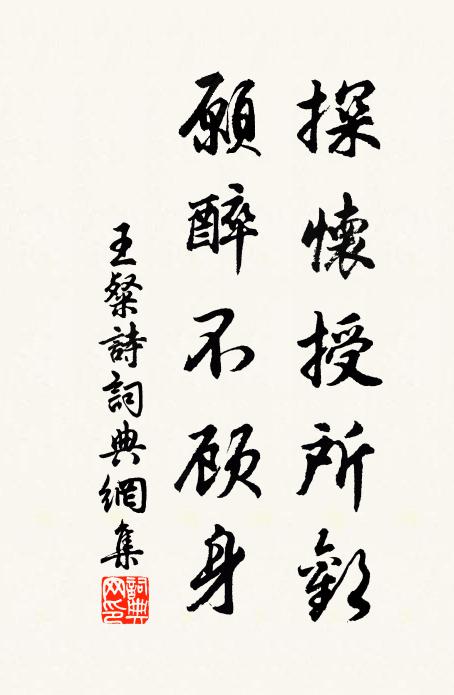 探懷授所歡
願醉不顧身
王粲詩詞典網集
詞典
网印